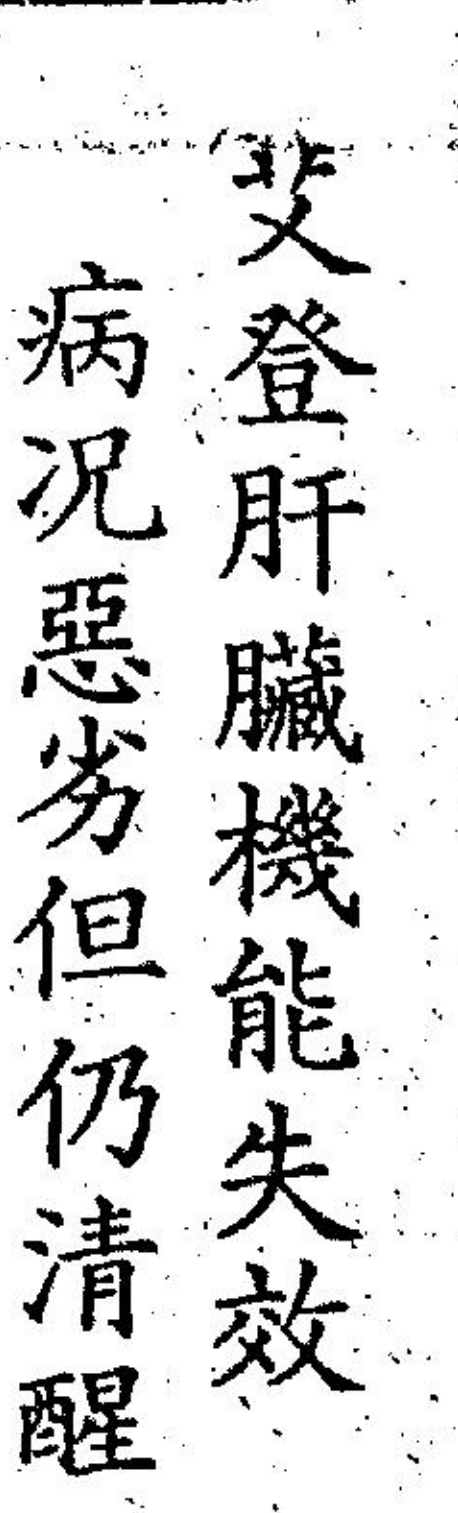 艾登肝臟機能失效
病況惡劣但仍清醒